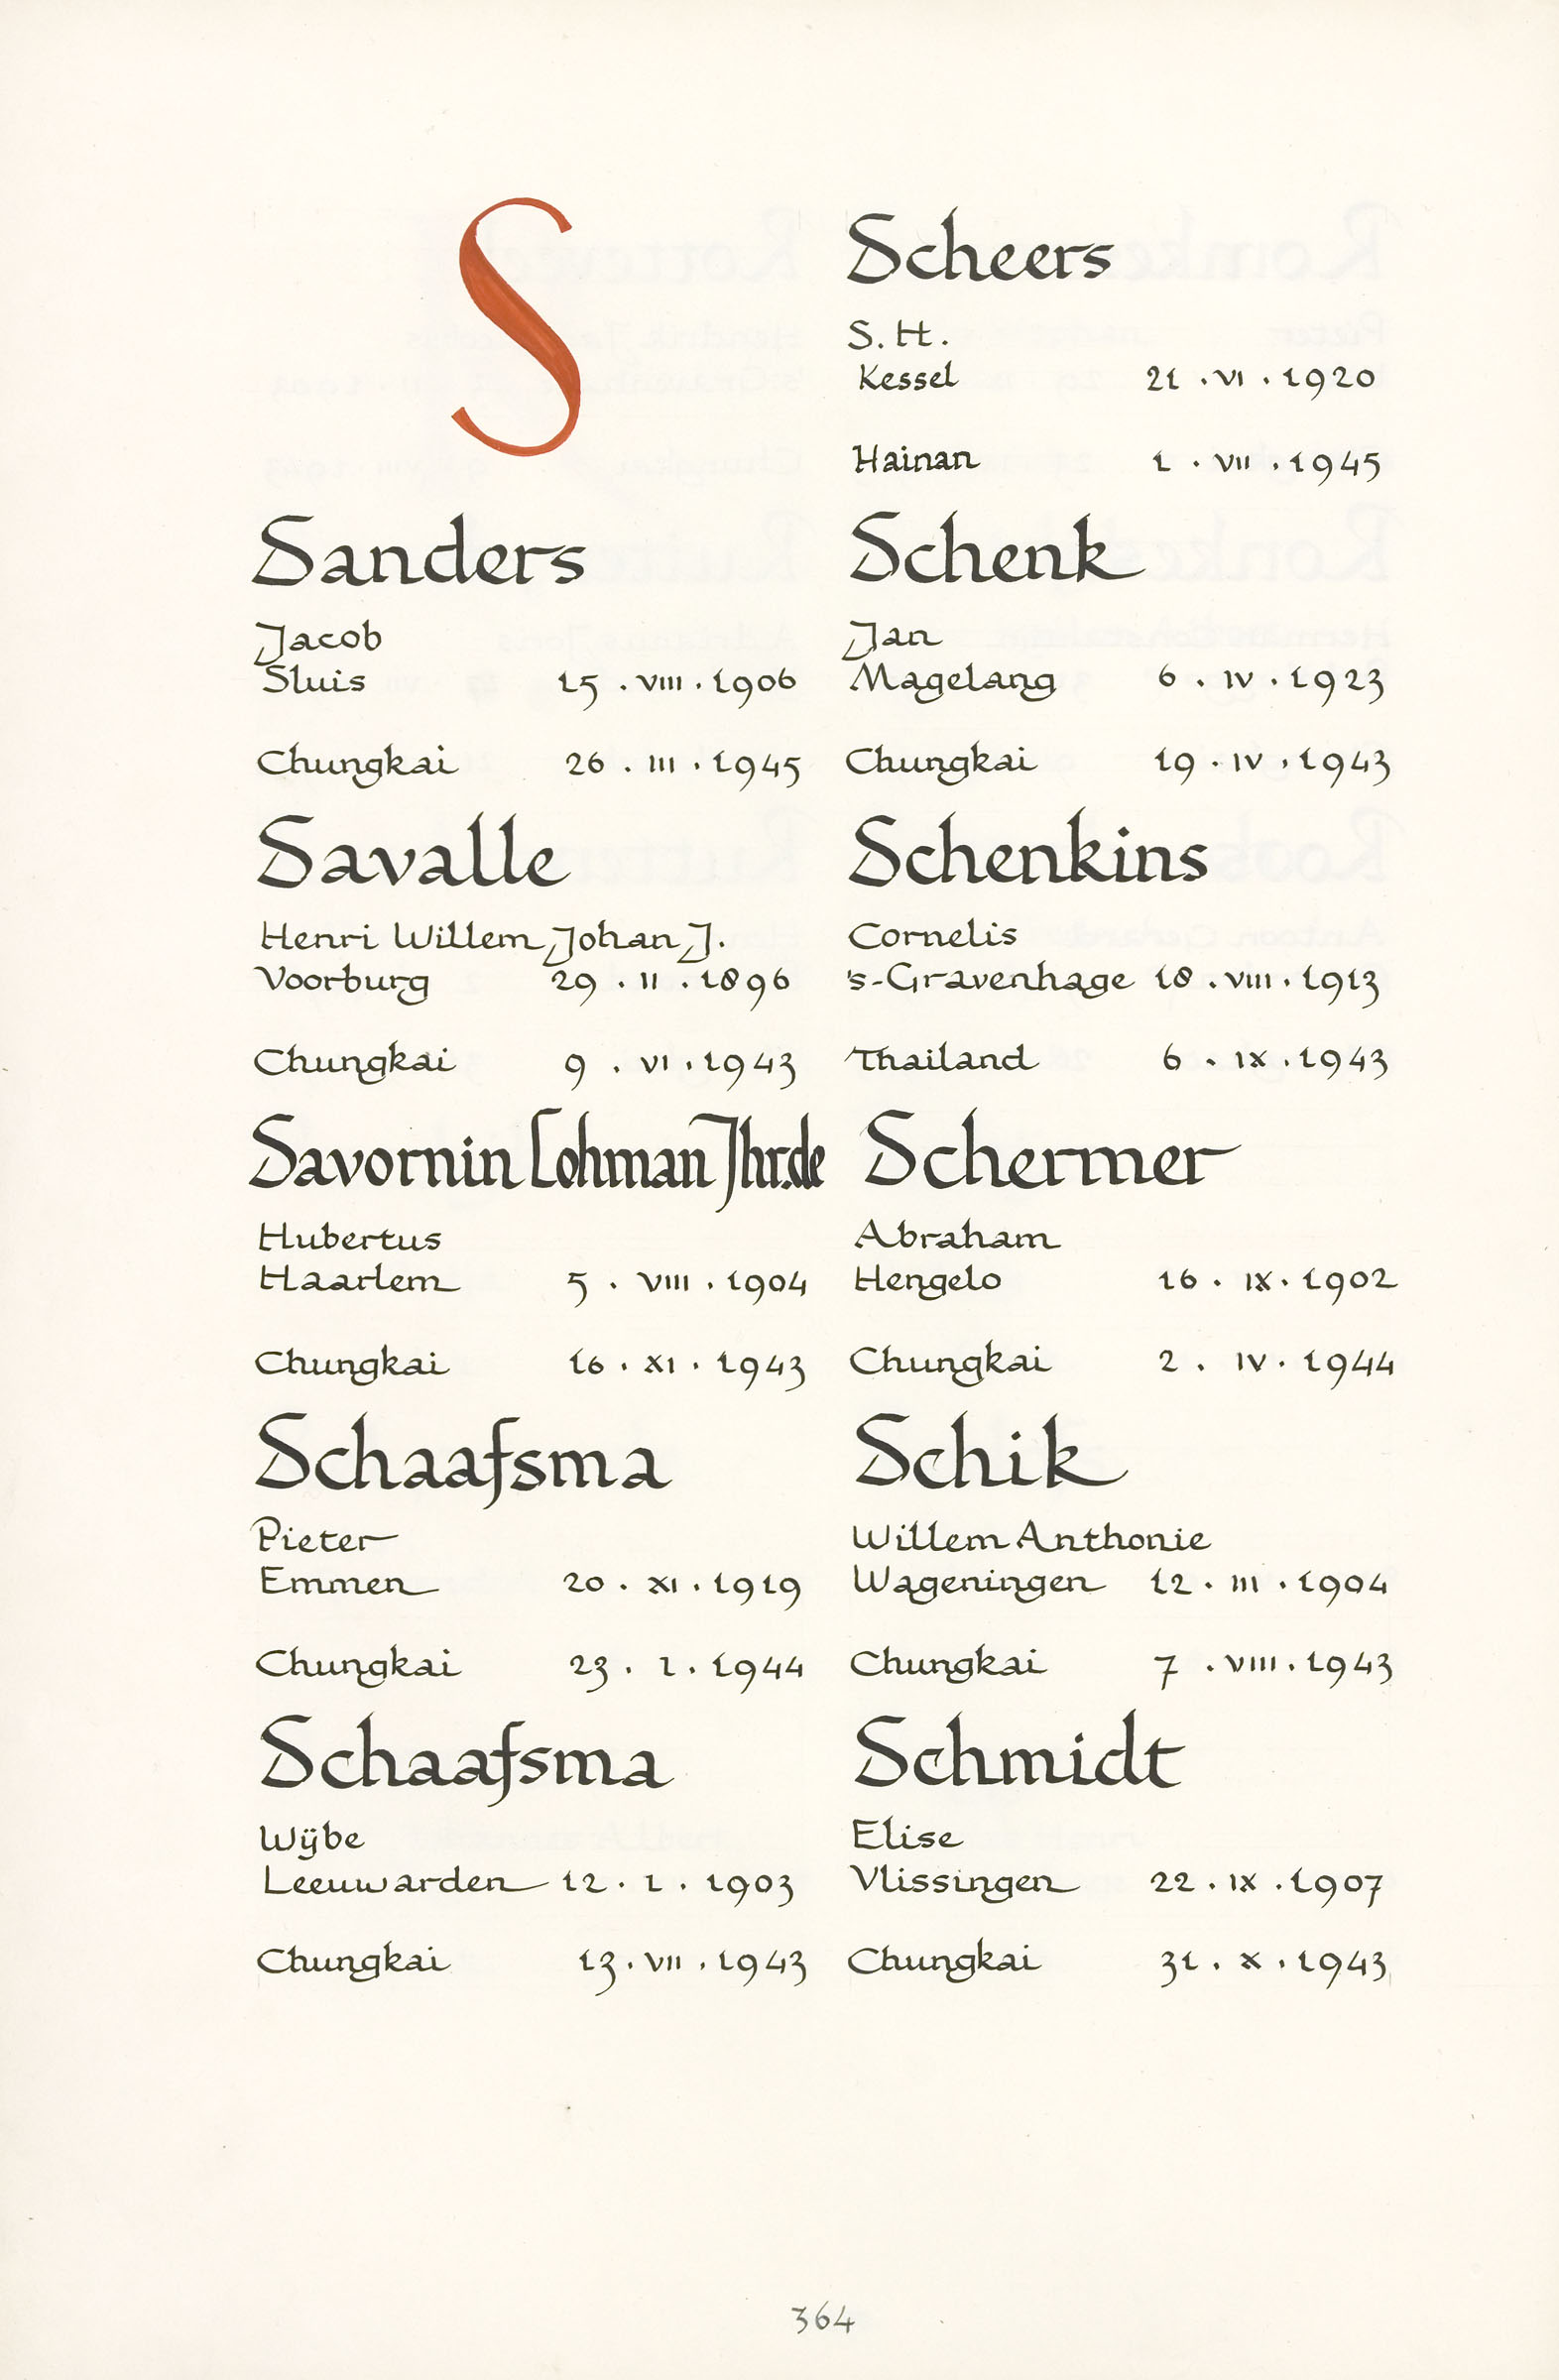 S
Sanders
Jacob
Sluis 15 . VIII . 1906
Chungkai 26 . III . 1945
Savalle
Henri Willem Johan J.
Voorburg 29 . II . 1896
Chungkai 9 . VI . 1943
Savornin Lohman Jhr.de
Hubertus
Haarlem 5 . VIII . 1904
Chungkai 16 . XI . 1943
Schaafsma
Pieter
Emmen 20 . XI . 1919
Chungkai 23 . I . 1944
Schaafsma
Wÿbe
Leeuwarden 12 . I . 1903
Chungkai 13 . VII . 1943
Scheers
S. H.
Kessel 21 . VI . 1920
Hainan 1 . VII . 1945
Schenk
Jan
Magelang 6 . IV . 1923
Chungkai 19 . IV . 1943
Schenkins
Cornelis
's-Gravenhage 18 . VIII . 1913
Thailand 6 . IX . 1943
Schermer
Abraham
Hengelo 16 . IX . 1902
Chungkai 2 . IV . 1944
Schik
Willem Anthonie
Wageningen 12 . III . 1904
Chungkai 7 . VIII . 1943
Schmidt
Elise
Vlissingen 22 . IX . 1907
Chungkai 31 . X . 1943
364